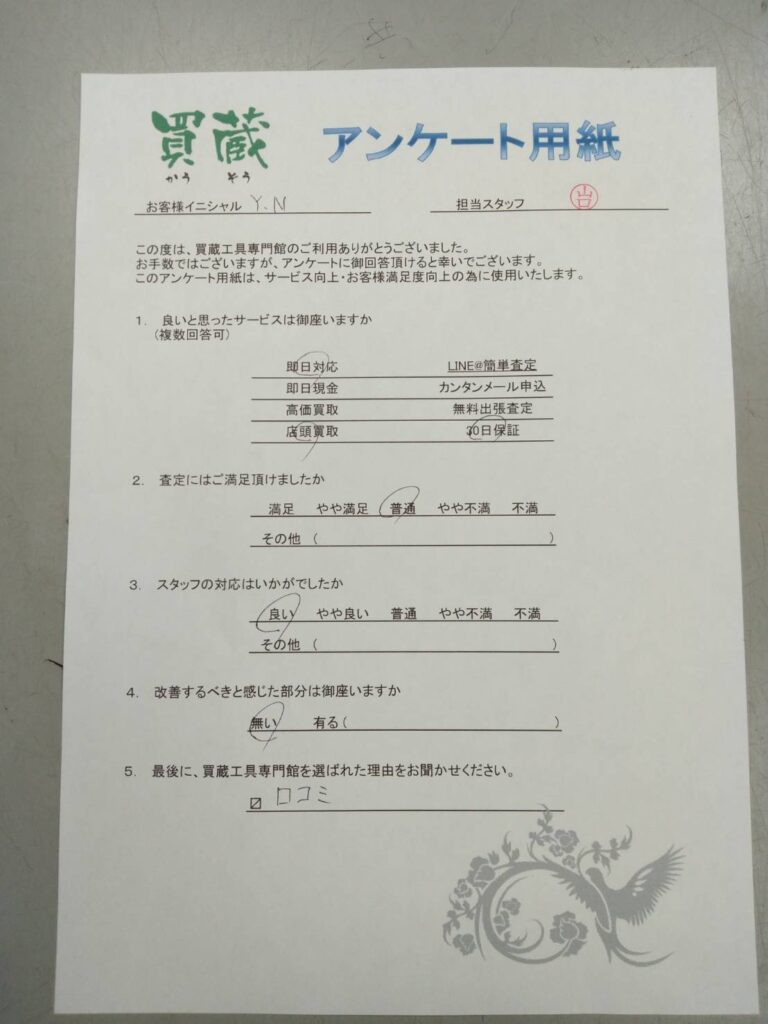 買蔵 アンケート用紙
かう ぞう
お客様イニシャル Y.N 担当スタッフ 山口
この度は、買蔵工具専門館のご利用ありがとうございました。
お手数ではございますが、アンケートに御回答頂けると幸いでございます。
このアンケート用紙は、サービス向上・お客様満足度向上の為に使用いたします。
1. 良いと思ったサービスは御座いますか
(複数回答可)
即日対応 LINE@簡単査定
即日現金 カンタンメール申込
高価買取 無料出張査定
店頭買取 30日保証
2. 査定にはご満足頂けましたか
満足 やや満足 普通 やや不満 不満
その他 ( )
3. スタッフの対応はいかがでしたか
良い やや良い 普通 やや不満 不満
その他 ( )
4. 改善するべきと感じた部分は御座いますか
無い 有る( )
5. 最後に、買蔵工具専門館を選ばれた理由をお聞かせください。
☑ 口コミ